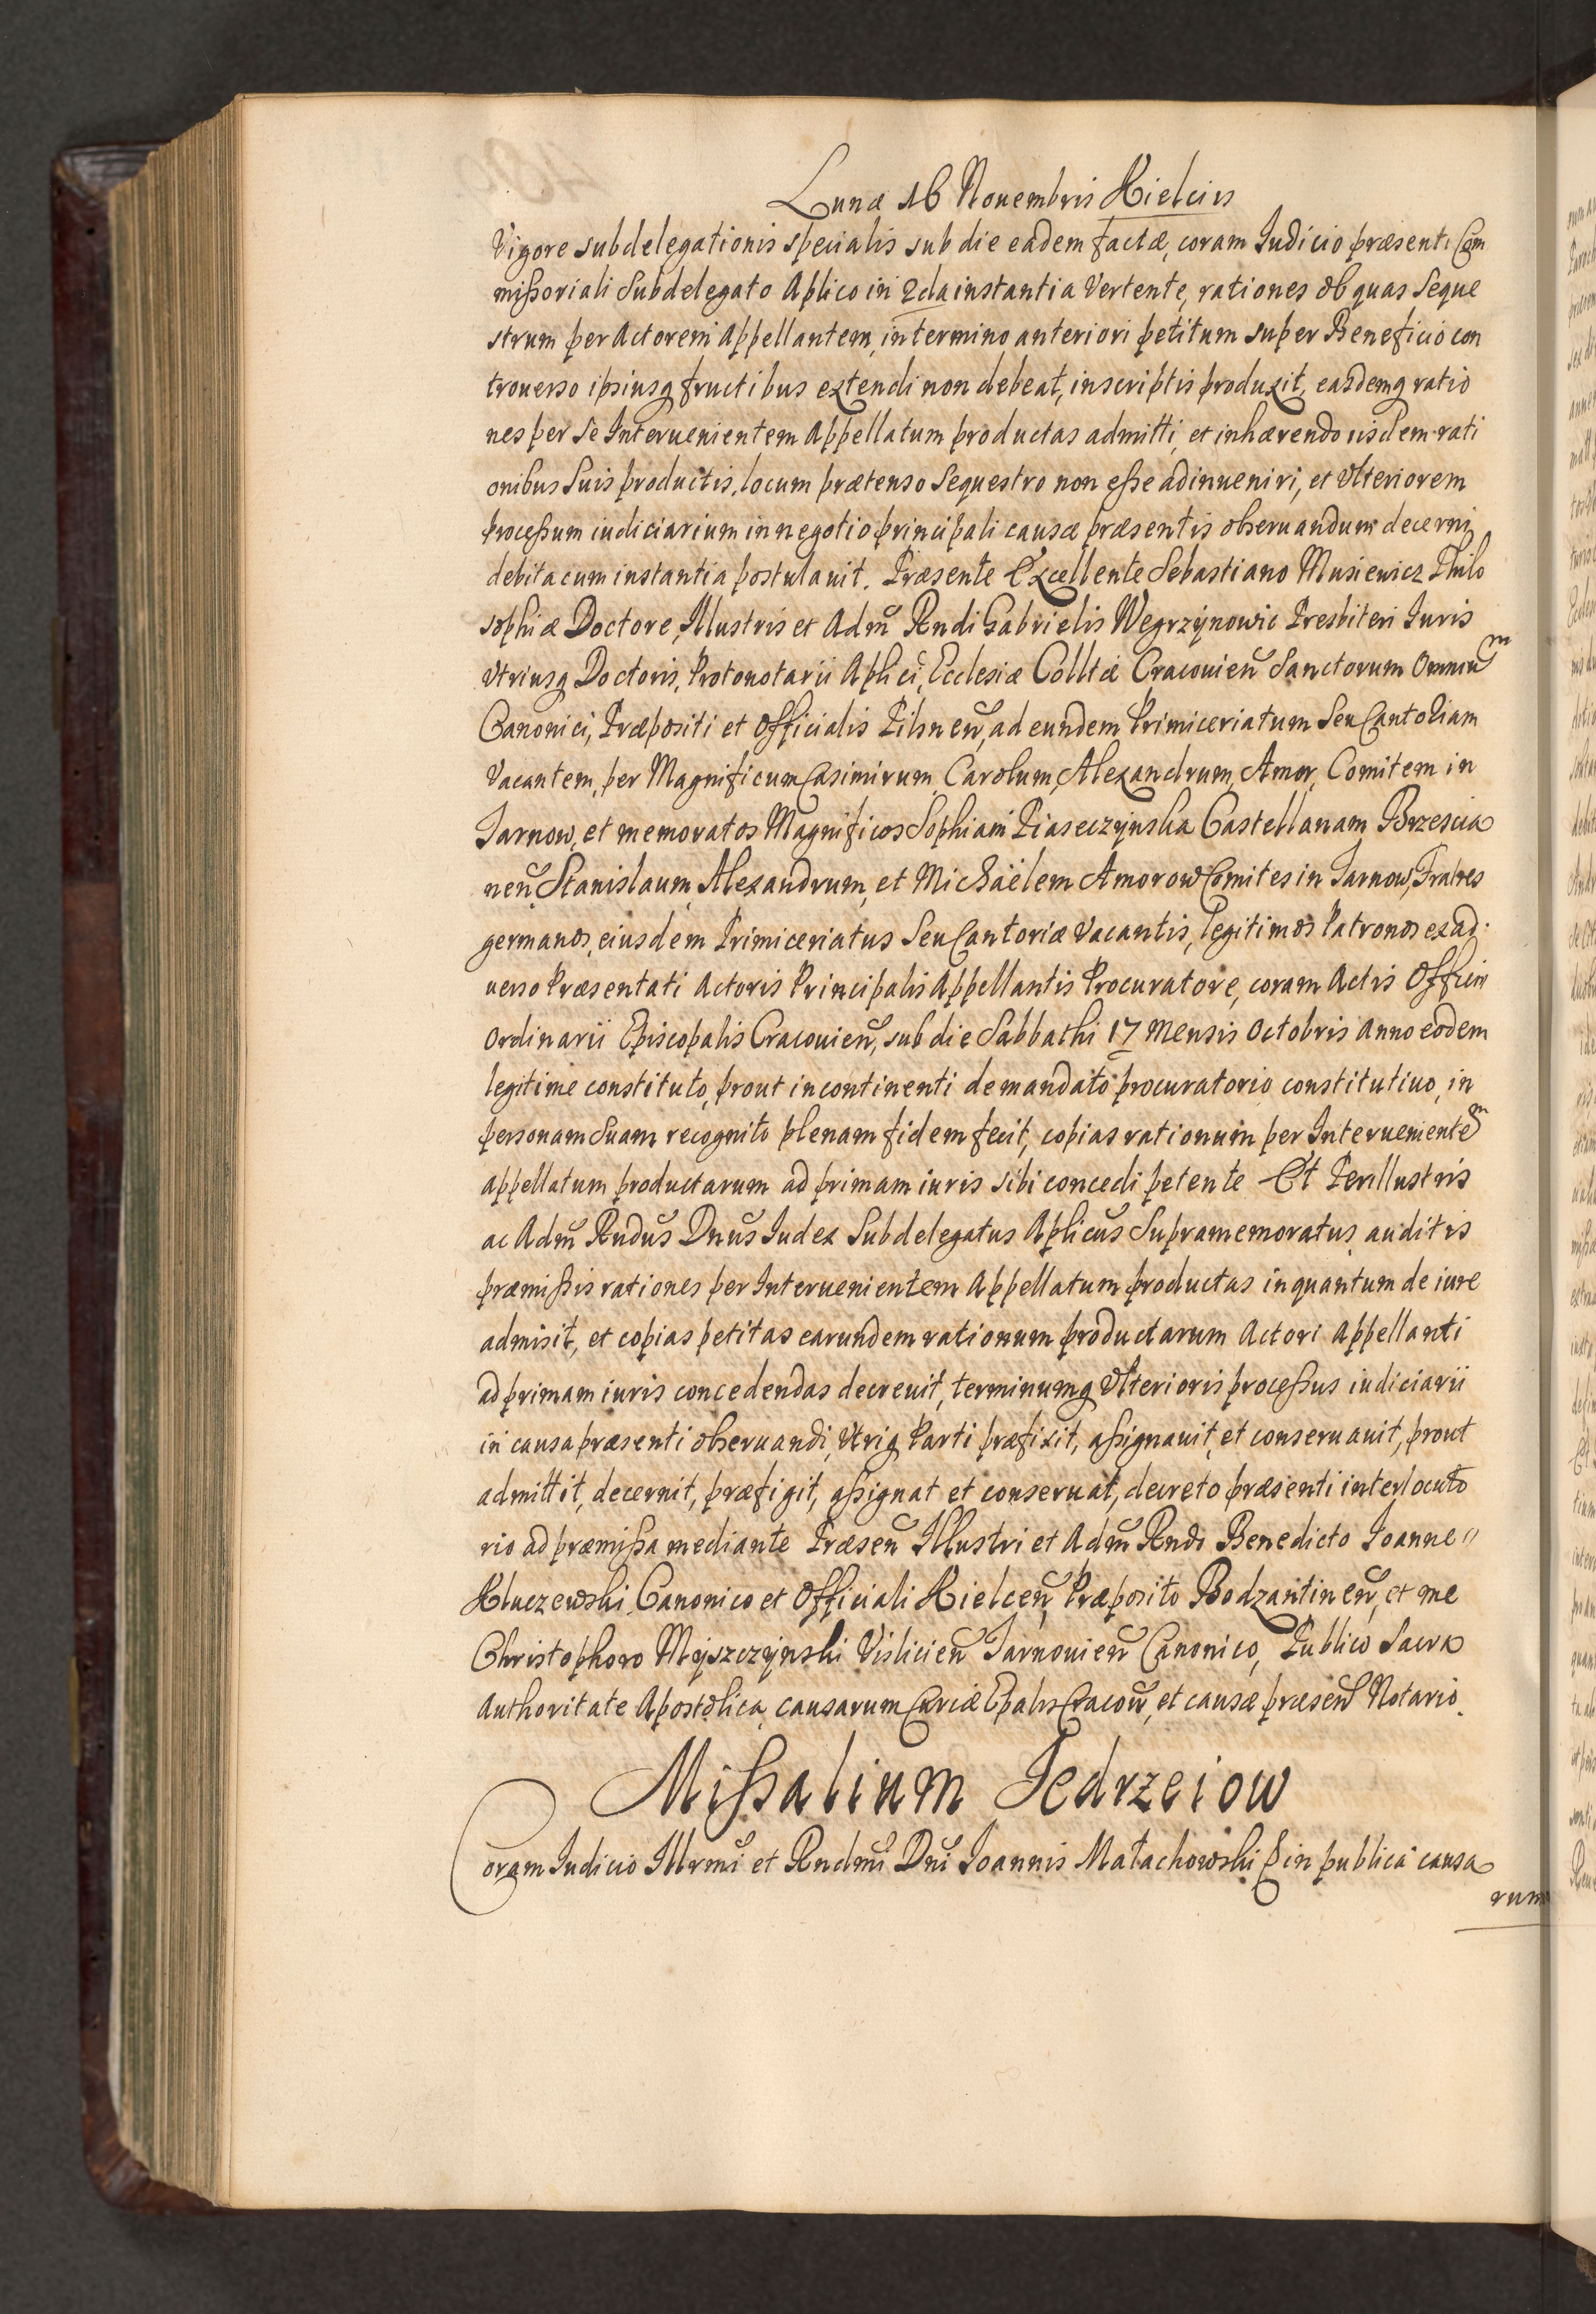 Lunæ 16 Nouembris Kielciis
Vigore subdelegationis specialis sub die eadem factæ, coram Iudicio præsenti Com
missoriali Subdelegato Aplico in 2da instantia Vertente, rationes ob quas Seque
strum per Actorem Appellantem, in termino anteriori petitum super Beneficio con
trouerso ipsiusq fructibus extendi non debeat, in scriptis produxit, easdemq ratio
nes per Se Interuenientem Appellatum productas admitti, et inhærendo iisdem rati
onibus Suis productis, locum prætenso Sequestro non esse adinueniri, et Vlteriorem
processum iudiciarium in negotio principali causæ præsentis obseruandum decerni
debita cum instantia postulauit. Præsente Excellente Sebastiano Musiewicz Philo
sophiæ Doctore, Illustris et Adm̃ Rndi Gabrielis Wegrzynowic Presbiteri Iuris
Vtriusq Doctoris, Protonotarii Aplici, Ecclesiæ Colltæ Cracouieñ Sanctorum Omniũm
Canonici, Præpositi et Officialis Pilsneñ, ad eundem Primiceriatum Seu Cantoriam
Vacantem, per Magnificum Casimirum, Carolum, Alexandrum, Amor, Comitem in
Tarnow, et memoratos Magnificos Sophiam Piaseczynska Castellanam Brzescia
neñ, Stanislaum, Alexandrum, et Michaëlem Amorow Comites in Tarnow, Fratres
germanos, eiusdem Primiceriatus Seu Cantoriæ Vacantis, legitimos Patronos ex ad
uerso Præsentati Actoris Principalis Appellantis Procuratore, coram Actis Officii
Ordinarii Episcopalis Cracouieñ, sub die Sabbathi 17 Mensis Octobris Anno eodem
legitime constituto, prout in continenti de mandato procuratorio constitutiuo, in
personam Suam recognito plenam fidem fecit, copias rationum per Interuenientem
appellatum productarum ad primam iuris sibi concedi petente Et Perillustris
ac Adm̃ Rndus Dnus Iudex Subdelegatus Aplicus Supramemoratus, auditis
præmissis rationes per Interuenientem Appellatum productas in quantum de iure
admisit, et copias petitas earundem rationum productarum Actori Appellanti
ad primam iuris concedendas decreuit, terminumq Vlterioris processus iudiciarii
in causa præsenti obseruandi, Vtriq Parti præfixit, assignauit, et conseruauit, prout
admittit, decernit, præfigit, assignat et conseruat, decreto præsenti interlocuto
rio ad præmissa mediante Præseñ Illustri et Adm̃ Rndo Benedicto Ioanne
Kluczewski, Canonico et Officiali Kielceñ, Præposito Bodzantineñ, et me
Christophoro Myszczynski Vislicieñ Tarnouieñ Canonico, Publico Sacra
Authoritate Apostolica, causarum Curiæ Epalis Cracoũ, et causæ præseñ Notario.
Missalium Jedrzeiow
Coram Iudicio Illrmi et Rndmi Dni Ioannis Małachowski & in publica causa
rum